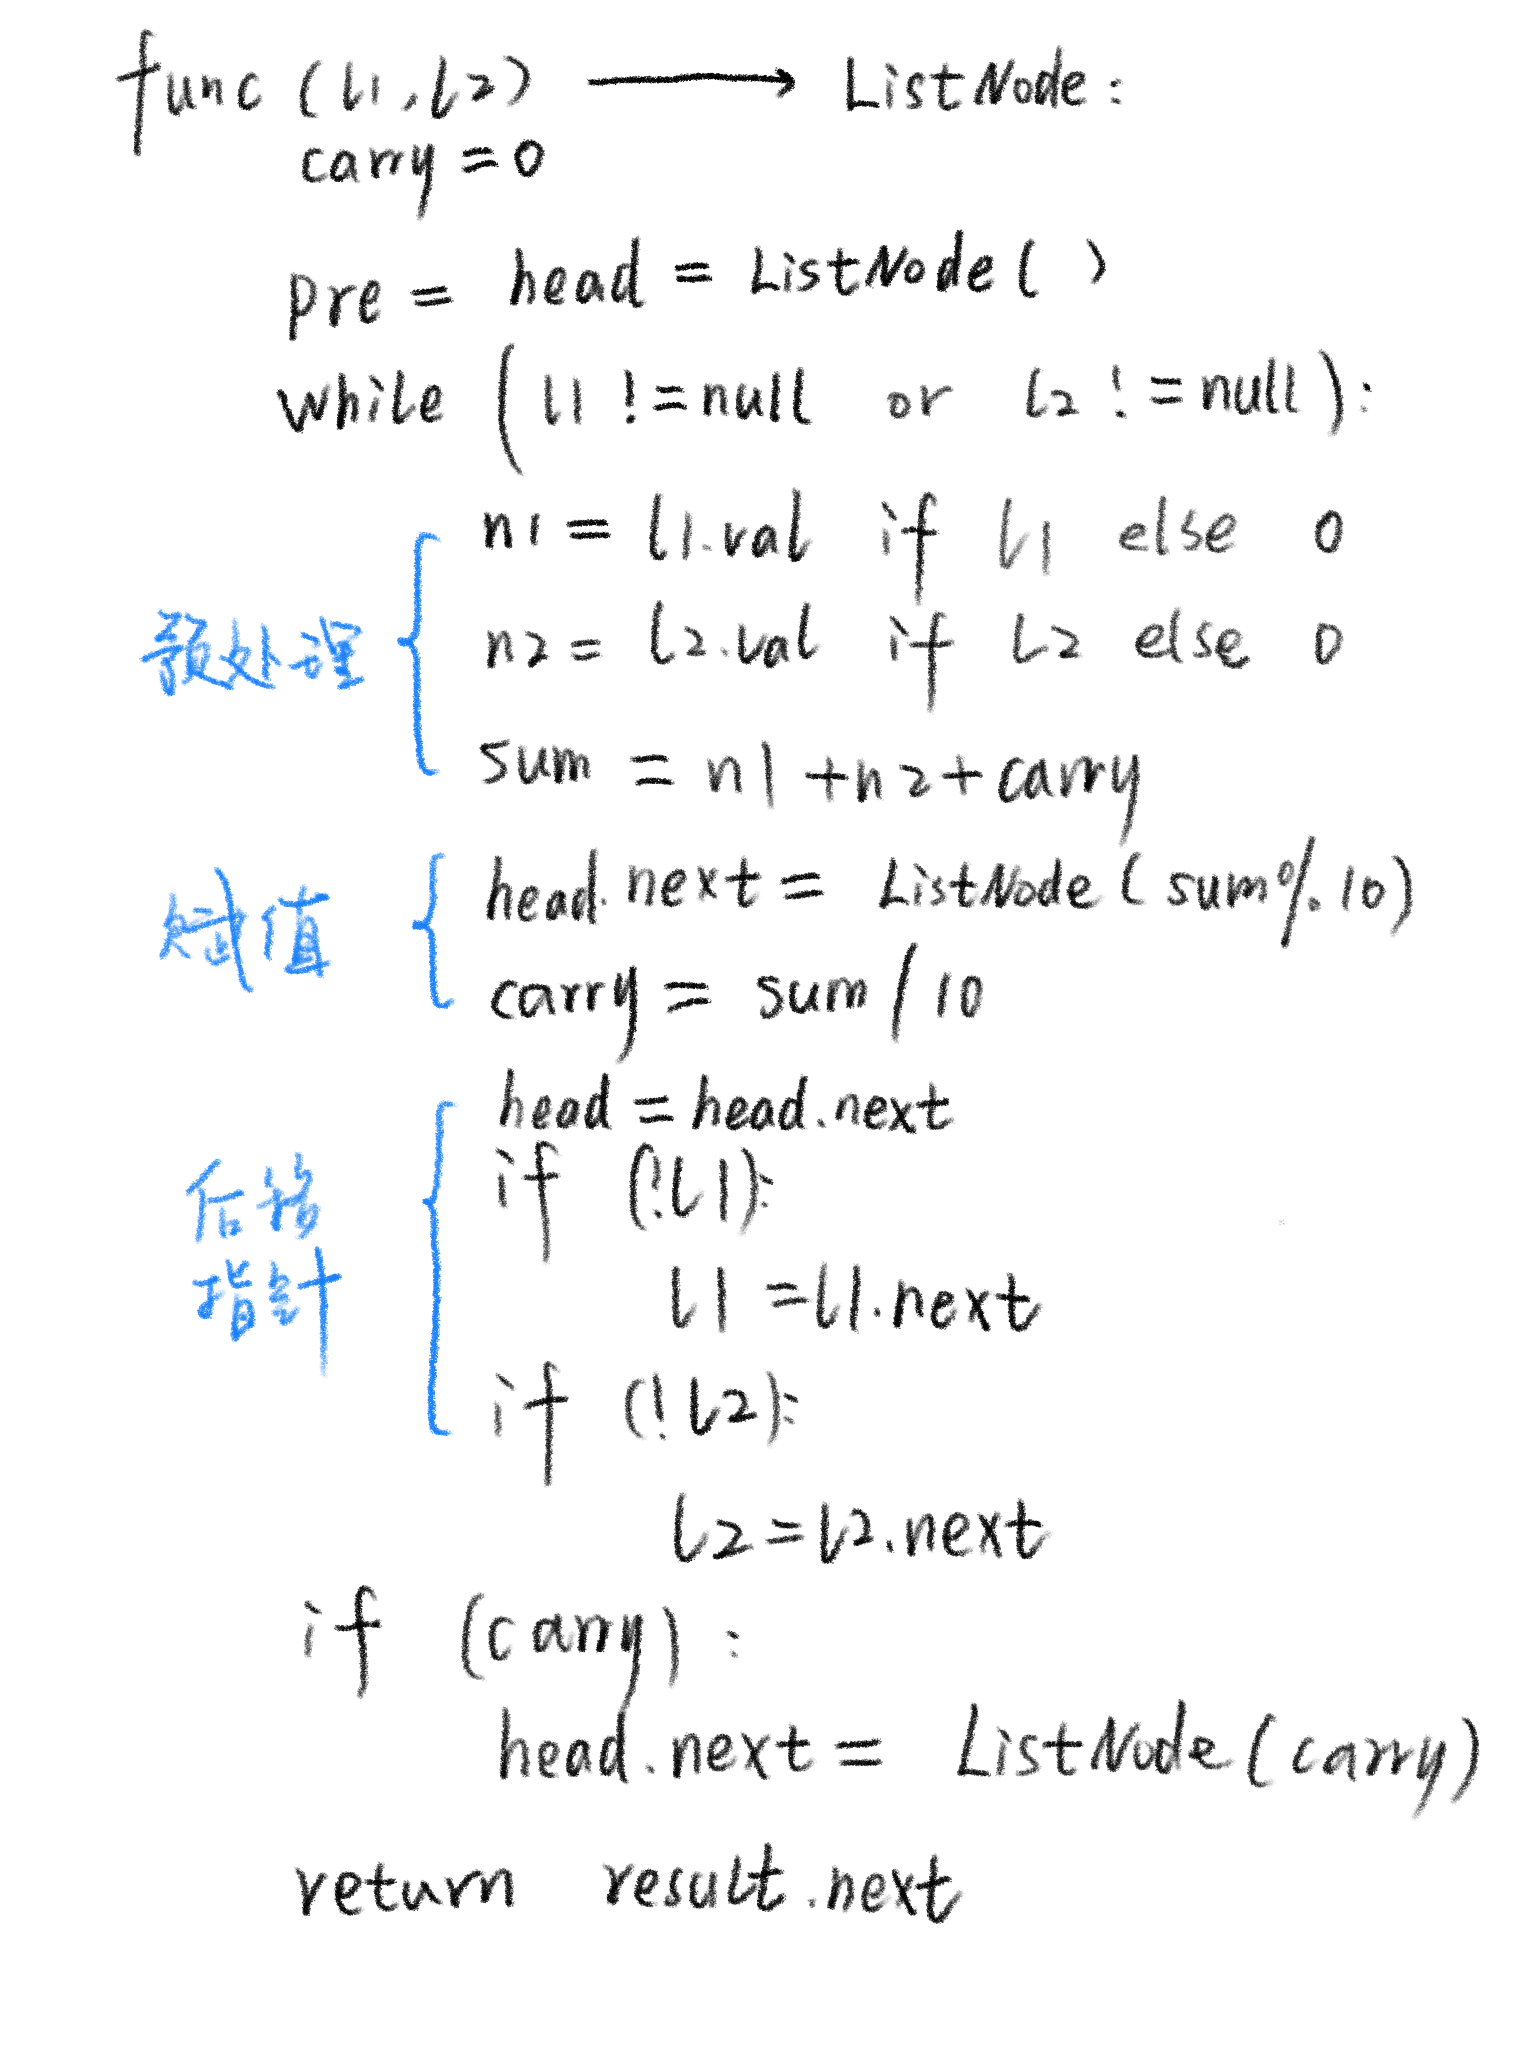 func (l1, l2) ⟶ ListNode:
carry = 0
pre = head = ListNode( )
while (l1 != null or l2 != null):
n1 = l1.val if l1 else 0
预处理
n2 = l2.val if l2 else 0
sum = n1 + n2 + carry
赋值
head.next = ListNode(sum%10)
carry = sum / 10
后移
指针
head = head.next
if (!l1):
l1 = l1.next
if (!l2):
l2 = l2.next
if (carry):
head.next = ListNode(carry)
return result.next